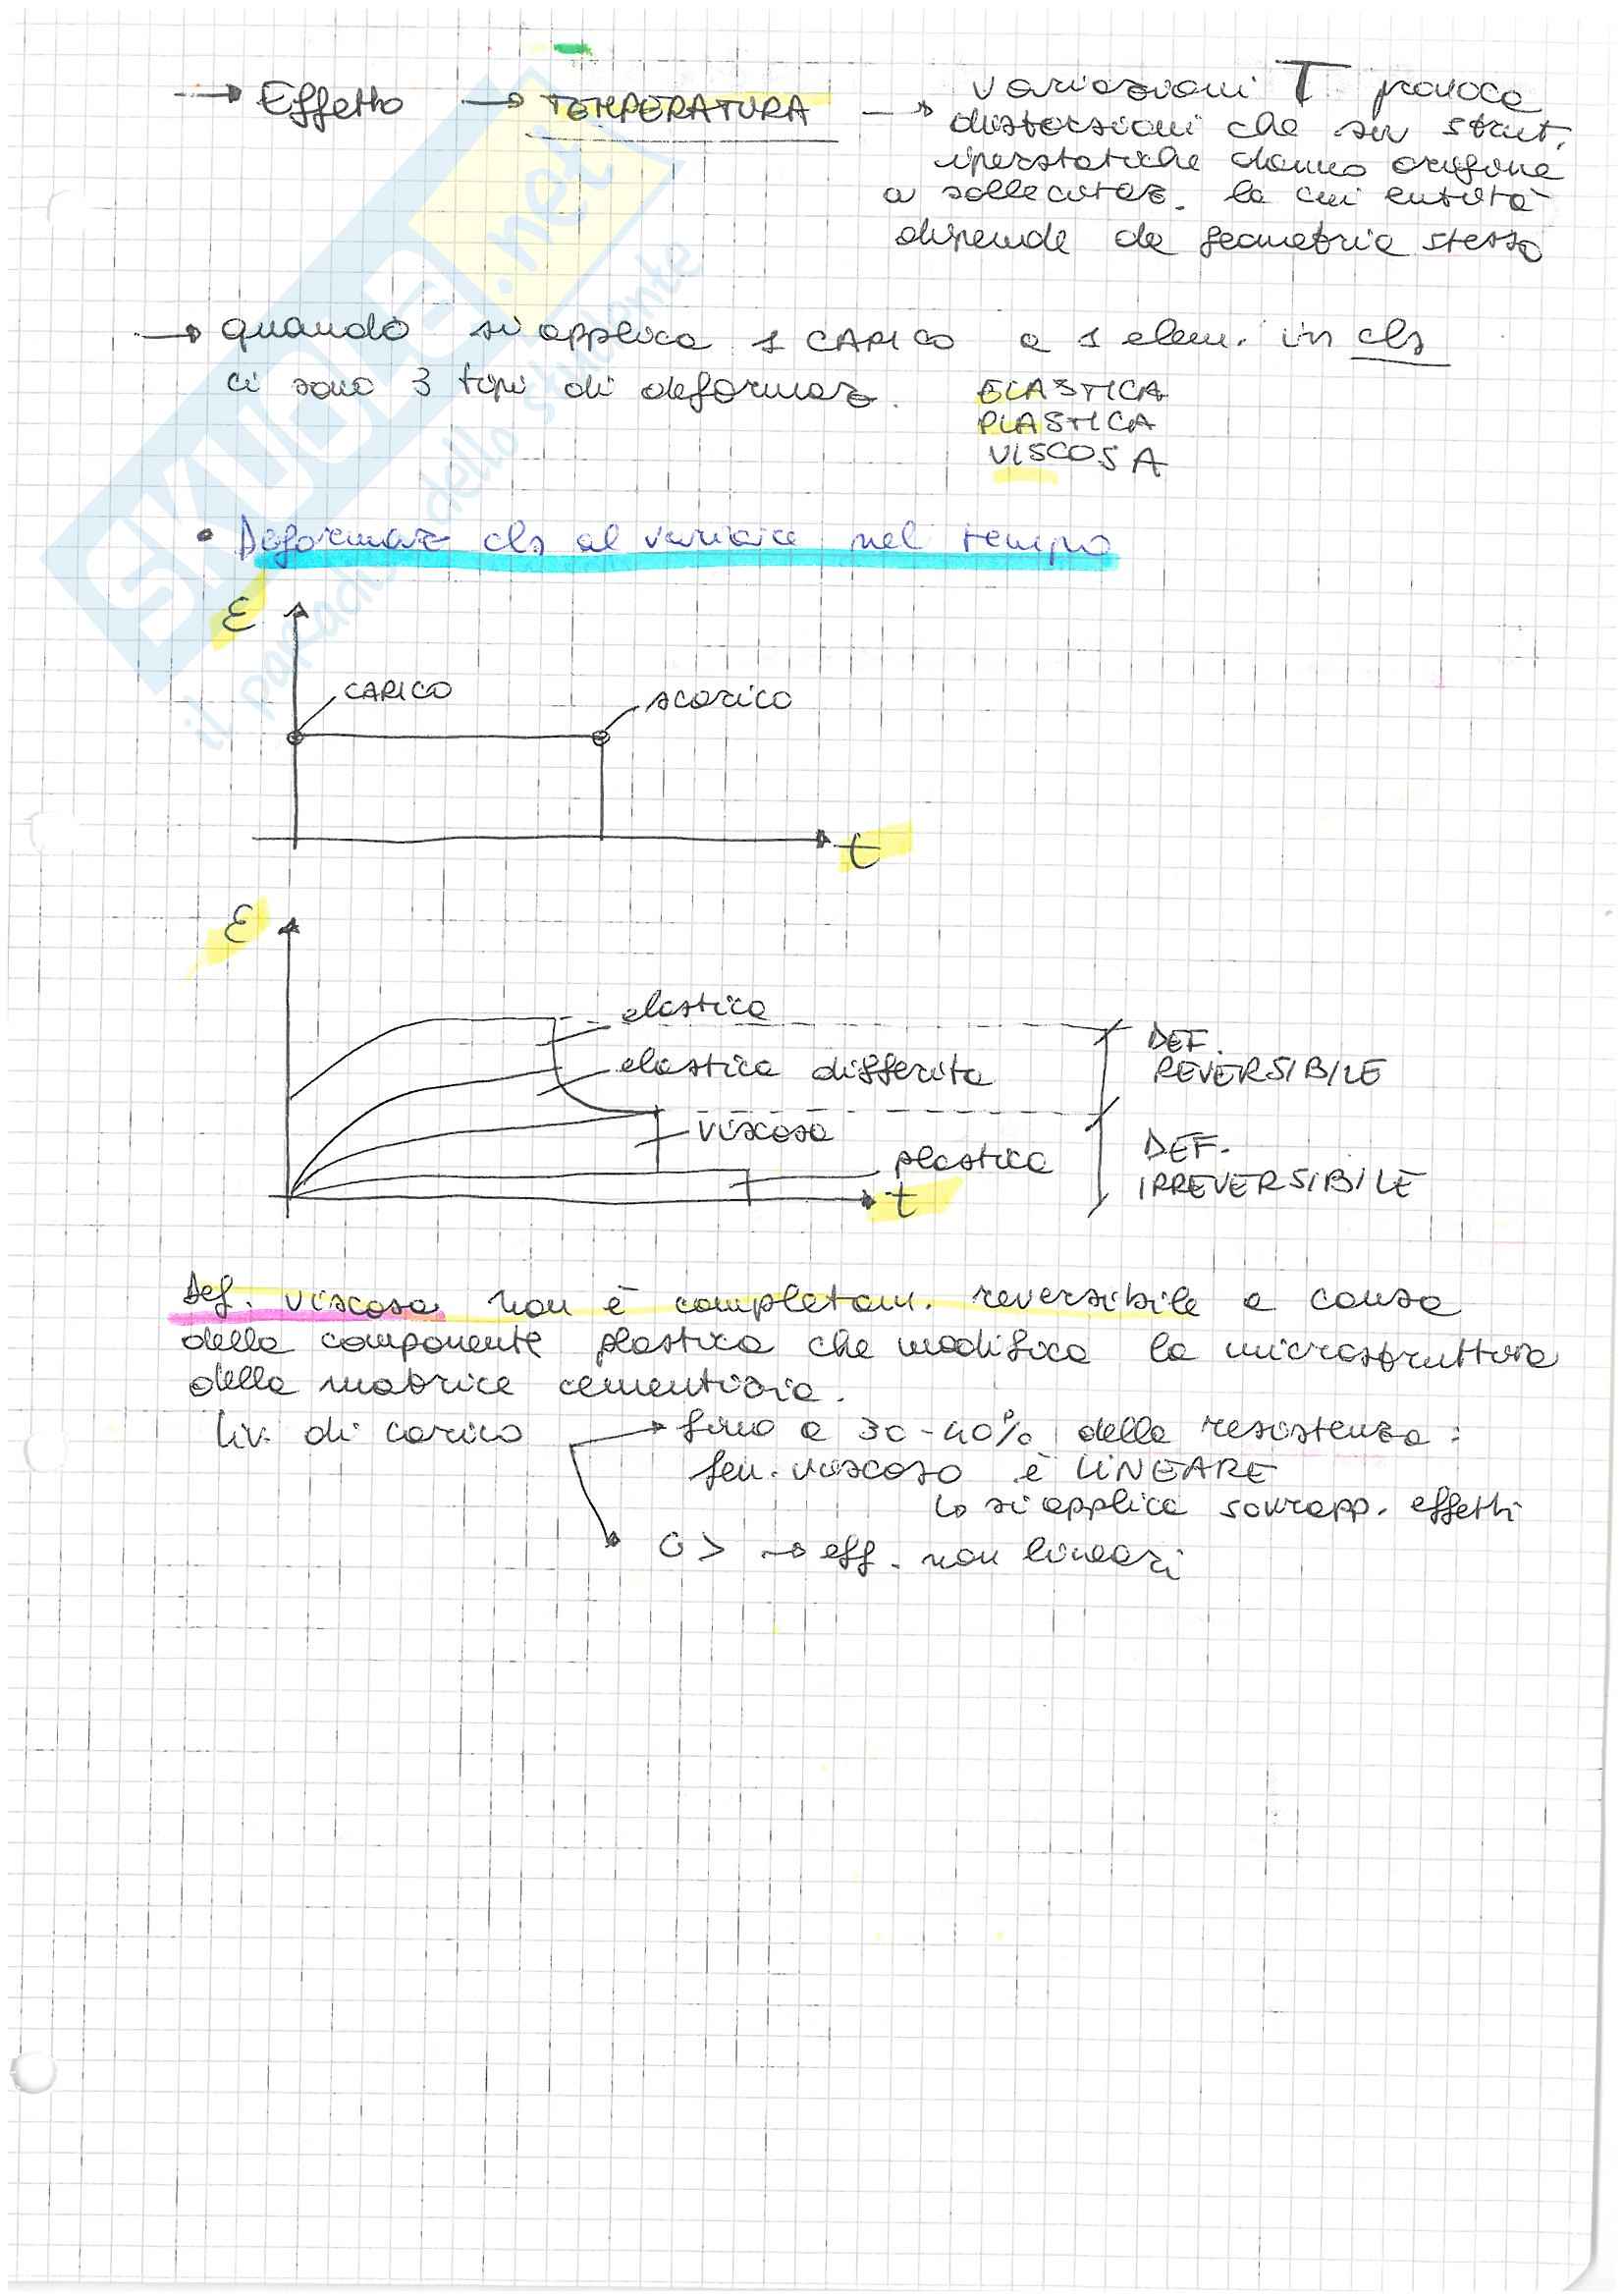 → Effetto → TEMPERATURA → variazioni T provoca
distorsioni che su strut.
iperstatiche danno origine
a sollecitaz. la cui entità
dipende da geometria stessa
→ quando si applica 1 CARICO a 1 elem. in cls
ci sono 3 tipi di deformaz. ELASTICA
PLASTICA
VISCOSA
• Deformaz cls al variare nel tempo
ε
CARICO
scarico
t
ε
elastica
elastica differita
viscosa
plastica
t
DEF.
REVERSIBILE
DEF.
IRREVERSIBILE
Def. viscosa non è completam. reversibile a causa
della componente plastica che modifica la microstruttura
della matrice cementizia.
Liv. di carico → fino a 30-40% della resistenza:
fen. viscoso è LINEARE
↳ si applica sovrapp. effetti
σ > → eff. non lineari
SKUOLA.net
il paradiso dello studente